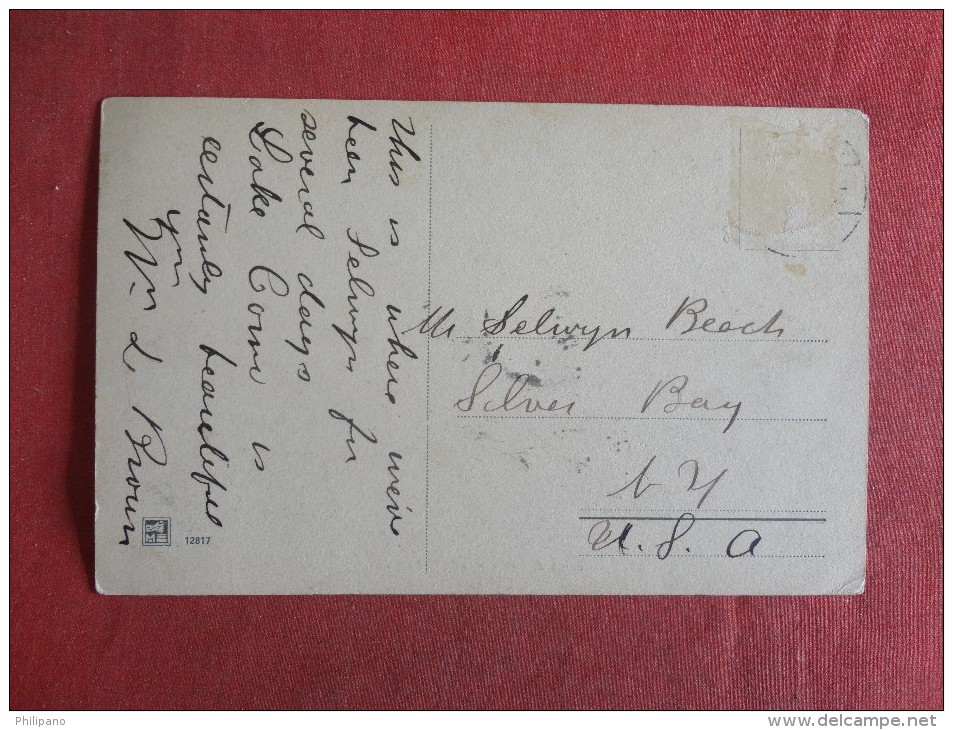 This is where we've
been Selwyn for
several days
Lake Como is
certainly beautiful
Wm L Brown
Mr Selwyn Beach
Silver Bay
N Y
U. S. A
12817
Philipano
www.delcampe.net